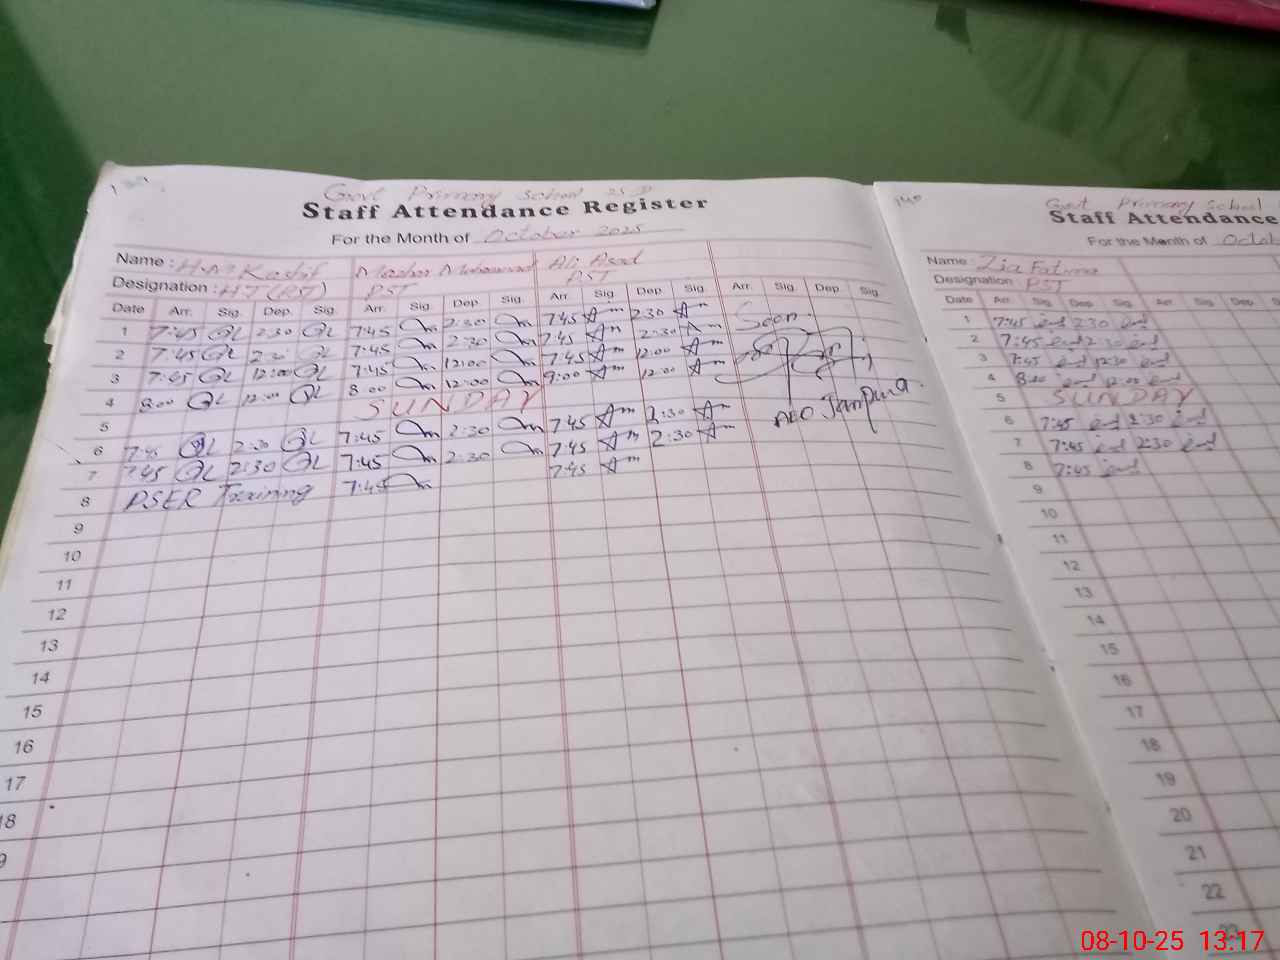 Govt Primary School 25 D
Staff Attendance Register
For the Month of October 2025
Name : H.M Kashif Ali Asad
Designation : HT (PST) PST PST
Date Arr. Sig. Dep. Sig. Arr. Sig. Dep. Sig. Arr. Sig. Dep. Sig. Arr. Sig. Dep. Sig.
1 7:45 2:30 7:45 2:30 7:45 2:30 Seen.
2 7:45 2:30 7:45 2:30 7:45 2:30
3 7:45 12:00 7:45 12:00 7:45 12:00
4 8:00 12:00 8:00 12:00 9:00 12:00
5 SUNDAY
6 7:45 2:30 7:45 2:30 7:45 2:30
7 7:45 2:30 7:45 2:30 7:45 2:30
8 PSER Training 7:45 7:45
9
10
11
12
13
14
15
16
17
18
9
140
Govt Primary School
Staff Attendance
For the Month of Octob
Name : Zia Fatima
Designation PST
Date Arr. Sig. Dep. Sig. Arr. Sig. Dep. S
1 7:45 2:30
2 7:45 2:30
3 7:45 12:30
4 8:00 12:00
5 SUNDAY
6 7:45 2:30
7 7:45 2:30
8 7:45
9
10
11
12
13
14
15
16
17
18
19
20
21
22
23
08-10-25 13:17